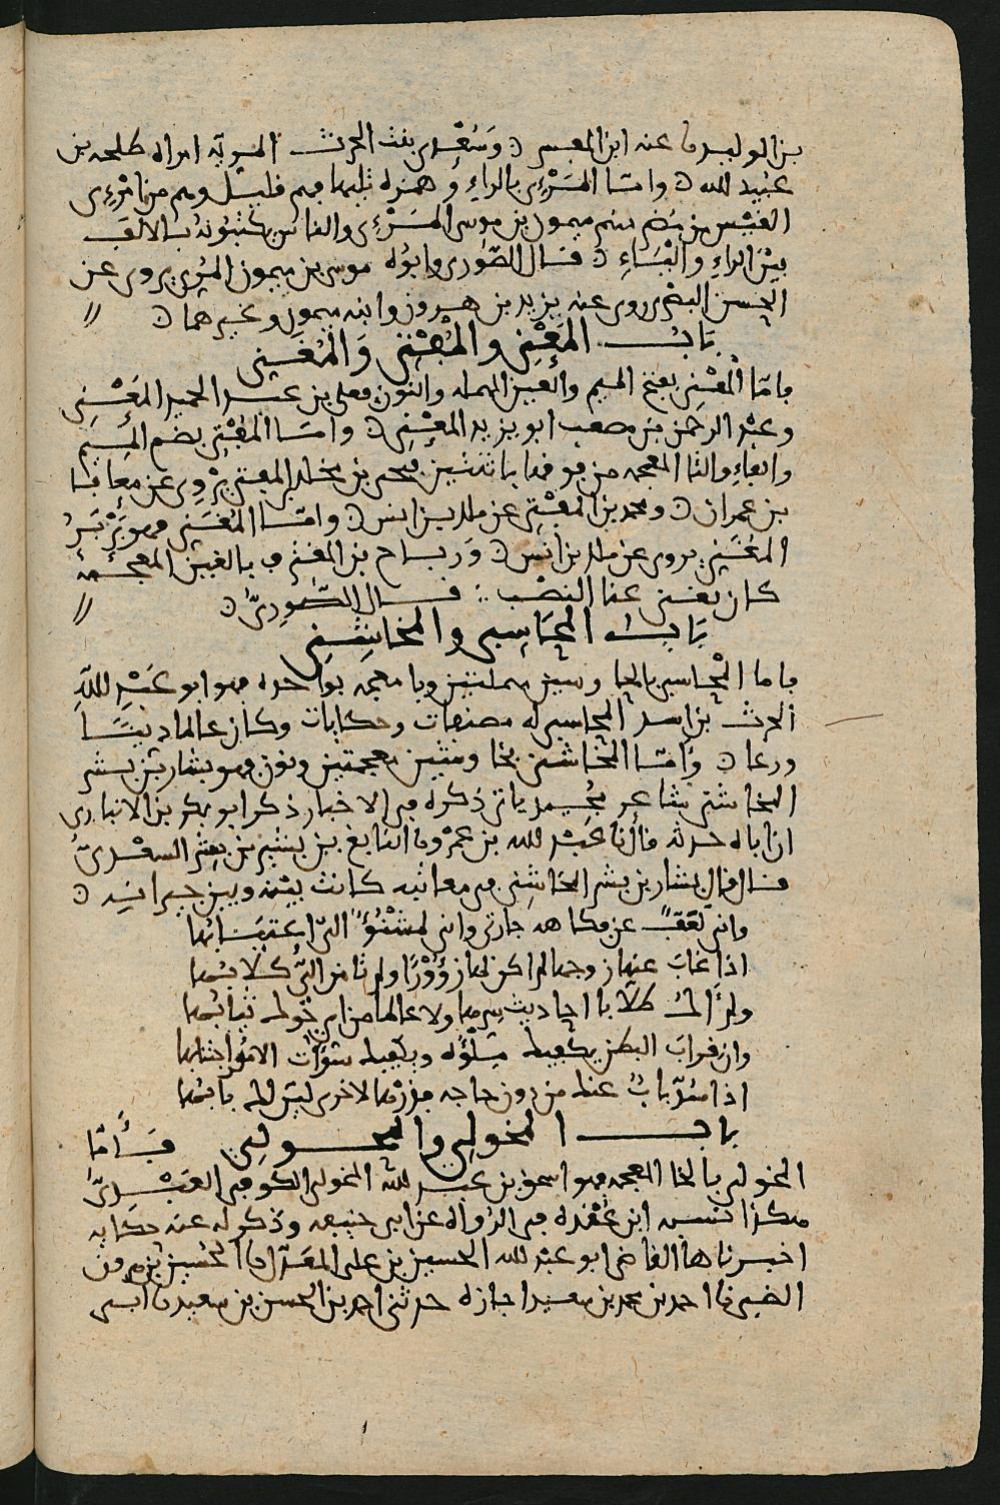 بن الوليد نا عنه ابن المعير وَسُعْدى بنت الحرث المرية امراة طلحه بن
عبيد الله واما المَرْءِى بالراءِ وهمزه تليها فهم قليل وهم من امْرِءِى
القيْس بن مضر منهم ميمون بن موسى المَرْءِى والناس يكتبونه بالالف
بيْن الراءِ واليَاءِ قال الصُّورى وابوُه موسى بن ميمون المرءى يروى عن
الحسن البصْرى روى عنه يزيد بن هرون وابنه ميمون وغيرهما
بَابُ المَعْنِى والمُفْتِى وَالمُغَنِى
فامّا المَعْنِى بفتح الميم والعين المهمله والنون فمعلى بن عبد الحميد المَعْنِى
وعبْد الرحمن بن مصعب ابو يزيد المعْنِى وامَّا المفْتِى بضم الميم
والفاءِ والتا المعجمه من فوقها باثنتين فيحيى بن مخلد المفتى يرْوِى عن مُعافا
بن عمران ومحمد بن المفْتِى عن ملك بن انس وامَّا المُغَنِى فهو بَرْبَرُ
المغَنى يروى عن ملك بن انس وَرباح بن المغترف بالغين المعجمة
كان يغنى غنا النصْب قال الصُّورِىُّ
بَابُ المحَاسِبى والمخاشِنِى
فاما المحَاسبى بالحا وسين مهملتين وبا معجمه بواحده فهو ابو عَبْدِ اللَّهِ
الحرث بن اسد المحاسبى له مصنفات وحكايات وكان عالما دينًا
ورعا وَامَّا المخَاشنى بخا وشين معجمتين ونون فهو بشار بن بشر
المخاشنى شاعر مُجيد ياتى ذكره فى الاخبار ذكر ابو بكر بن الانبارى
ان اباه حدثه قال نا عَبْد الله بن عَمْرو نا النابغ بن بشير بن بشر السعْدىُّ
قال قال بشار بن بشر المخاشنى فى معاتبه كانت بيْنه وبين جيرانه
وانى لعَفٌّ عن فكاهه جارتى وانى لمشْنُوٌ الىَّ اغتيَابُها
اذا غابَ عنها زوجها لم اكن لها زؤورًا ولم تانس الىَّ كلابُها
ولم اك طلابا احاديث سِرها ولا عالما من اى حَوك ثيابُها
وان قراب البطن يكفيك مِلْؤُه ويكفيك سَوْآت الامُور اجتنابها
اذا سُدّ بابٌ عنك من دون حاجه فذرْها لاخرى ليّن لك بابُها
باب المخولى والمحولى فَأمّا
المخولى بالخا المعجمه فهو اسحق بن عبد الله المخولى الكوفى العَبْدىُّ
هكذا نسبه ابن عُقْده فى الرُّواه عن ابى حنيفه وذكر له عنه حكايه
اخبرناها القاضى ابو عبْد الله الحسين بن على المعدَّل نا الحُسين بن هرون
الضبى نا احمد بن محمد بن سعيد اجازه حدثنى احمد بن الحسن بن سعيد نا ابى